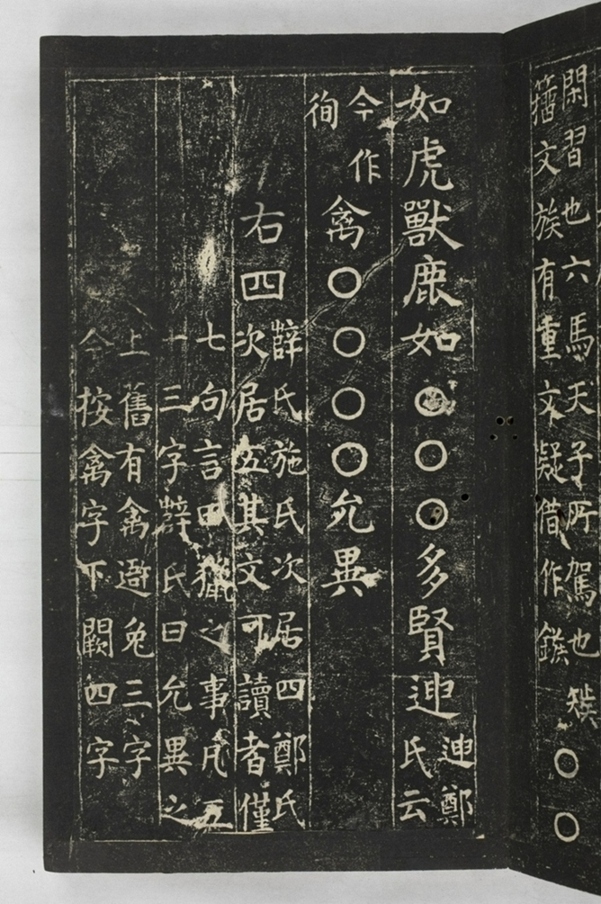 閑習也六馬天子所駕也
籀文族有重文疑借作鏃
○○
如虎獸鹿如○○○多賢迧
迧鄭
氏云
今作
徇
禽○○○○允異
右四
薛氏施氏次居四鄭氏
次居五其文可讀者僅
七句言田獵之事凡五
十三字薛氏曰允異之
上舊有禽避兔三字
今按禽字下闕四字